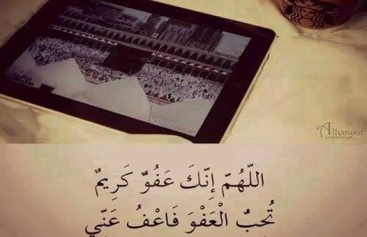 Alhanoof
اللّهُمّ إِنّكَ عَفُوٌّ كَرِيمٌ
تُحبُّ الْعَفْوَ فَاعْفُ عَنّي